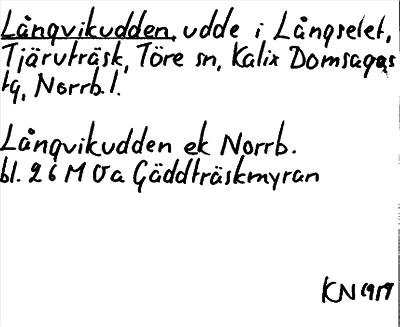 Långvikudden, udde i Långselet,
Tjäruträsk, Töre sn, Kalix Domsagas
tg, Norrb.l.
Långvikudden ek Norrb.
bl. 26 M Va Gäddträskmyran
KN 1959